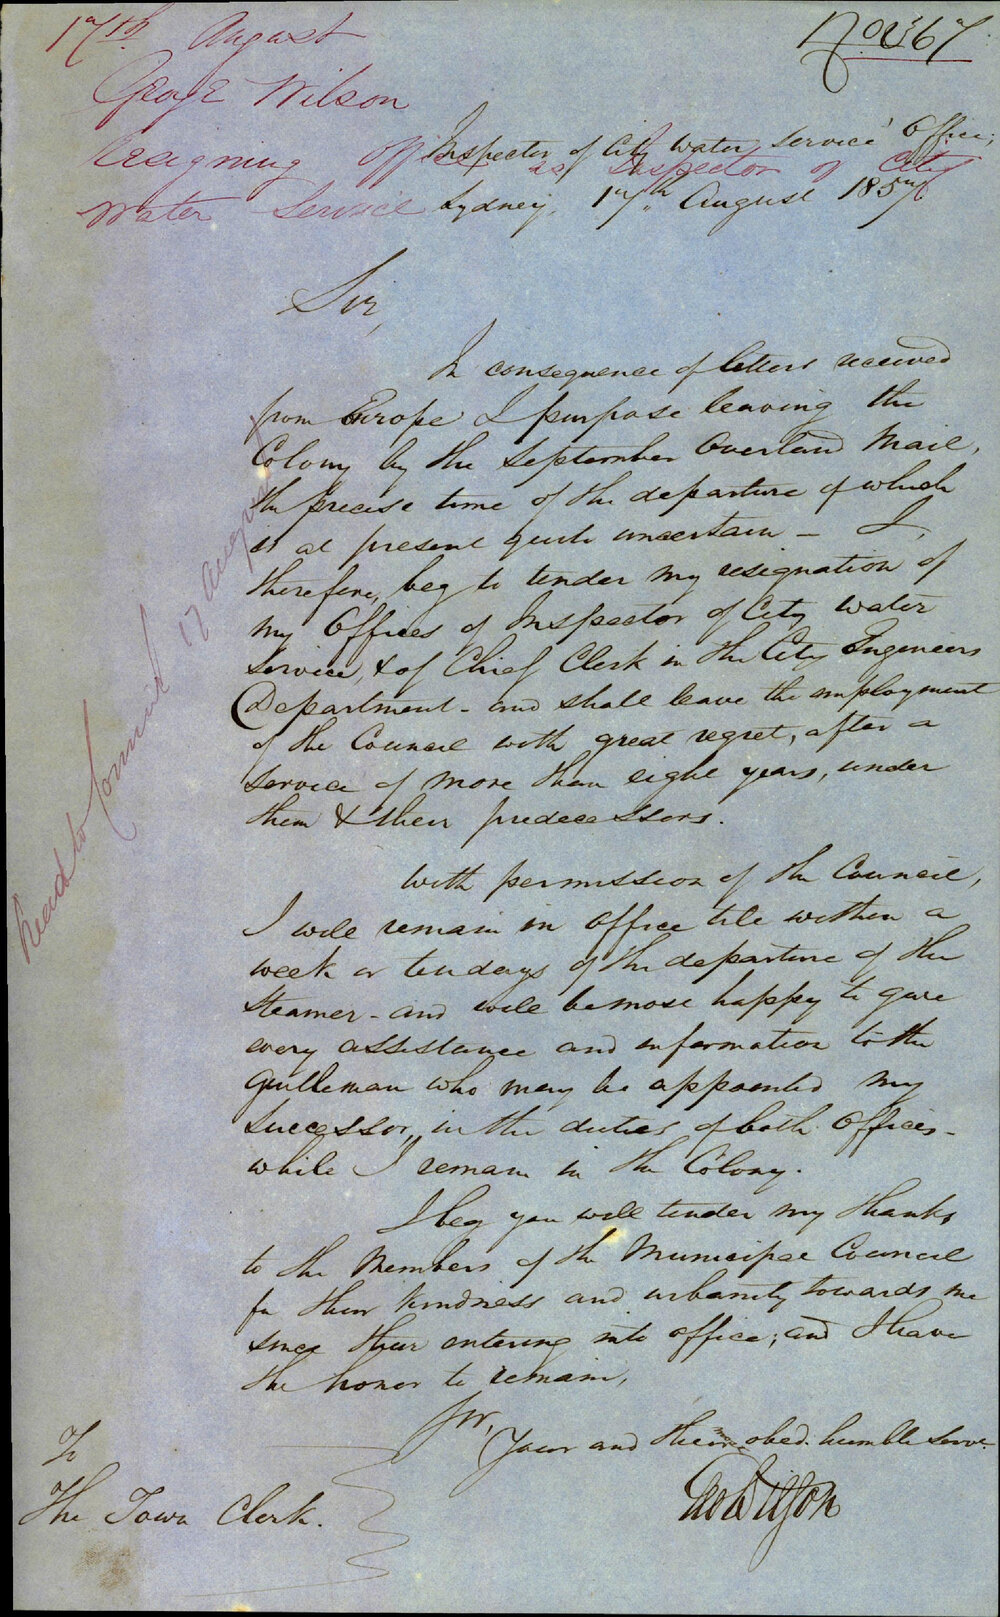 17th August
No. 367
George Wilson
Resigning Office as Inspector of City
Water Service
Inspector of City Water Service Office,
Sydney, 17th August 1857
Sir,
In consequence of letters received
from Europe I purpose leaving the
Colony by the September Overland Mail,
the precise time of the departure of which
is at present quite uncertain - I,
therefore, beg to tender my resignation of
my Offices of Inspector of City Water
Service, & of Chief Clerk in the City Engineers
Department - and shall leave the employment
of the Council with great regret, after a
service of more than eight years, under
them & their predecessors.
With permission of the Council,
I will remain in office till within a
week or ten days of the departure of the
Steamer - and will be most happy to give
every assistance and information to the
gentleman who may be appointed my
successor, in the duties of both Offices -
while I remain in the Colony.
I beg you will tender my thanks
to the Members of the Municipal Council
for their kindness and urbanity towards me
since their entering into office; and I have
the honor to remain,
Sir,
Your and their mo obed. humble servt.
Geo Wilson
To
The Town Clerk.
Read to Council 17 August